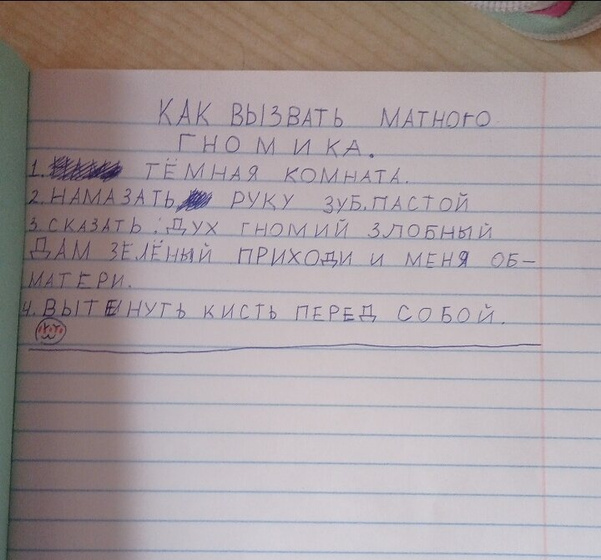 КАК ВЫЗВАТЬ МАТНОГО
ГНОМИКА.
1. ТЁМНАЯ КОМНАТА.
2. НАМАЗАТЬ РУКУ ЗУБ.ПАСТОЙ
3. СКАЗАТЬ: ДУХ ГНОМИЙ ЗЛОБНЫЙ
ДАМ ЗЕЛЁНЫЙ ПРИХОДИ И МЕНЯ ОБ-
МАТЕРИ.
4. ВЫТЕНУТЬ КИСТЬ ПЕРЕД СОБОЙ.